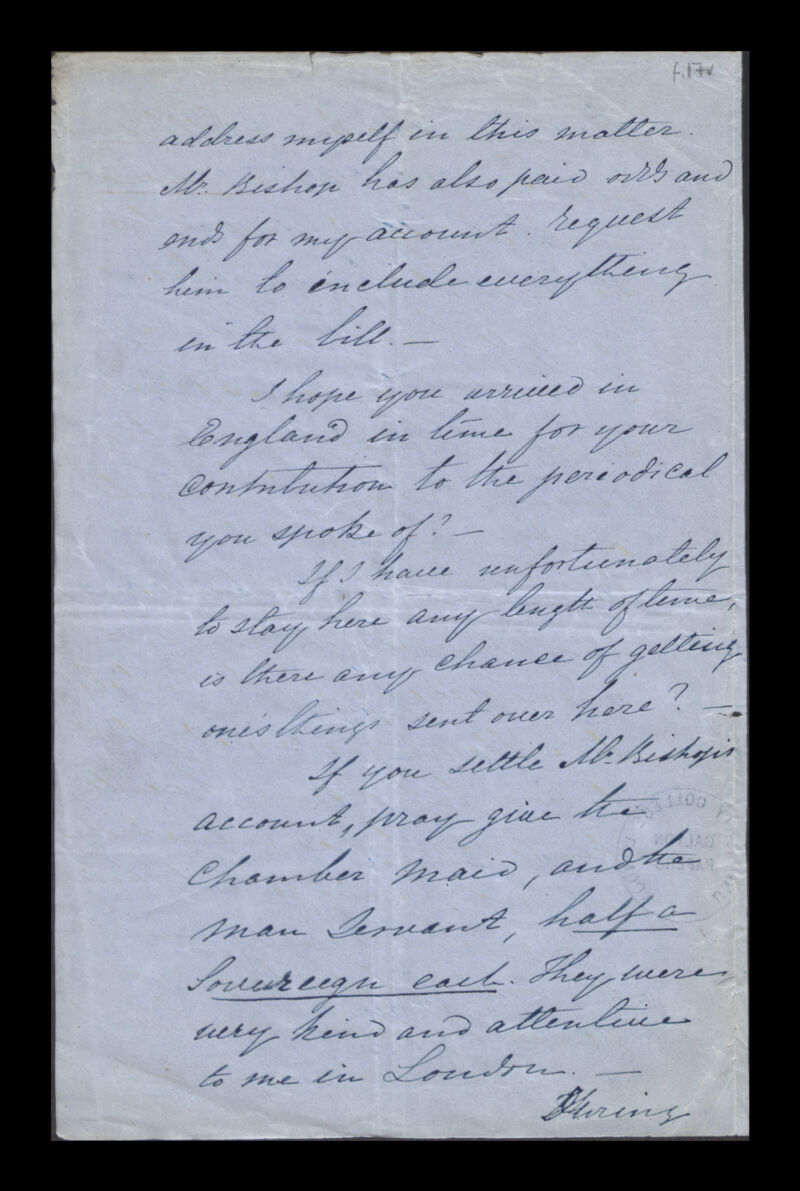 f.17v
address myself in this matter.
Mr. Bishop has also paid odds and
ends for my account. request
him to include everything
in the bill. —
I hope you arrived in
England in time for your
contribution to the periodical
you spoke of? —
If I have unfortunately
to stay here any length of time,
is there any chance of getting
one's things sent over here? —
If you settle Mr. Bishop's
account, pray give the
Chamber Maid, and the
man Servant, half a
Sovereign each. They were
very kind and attentive
to me in London. —
During
COLLEGE
GALTON
PAPERS